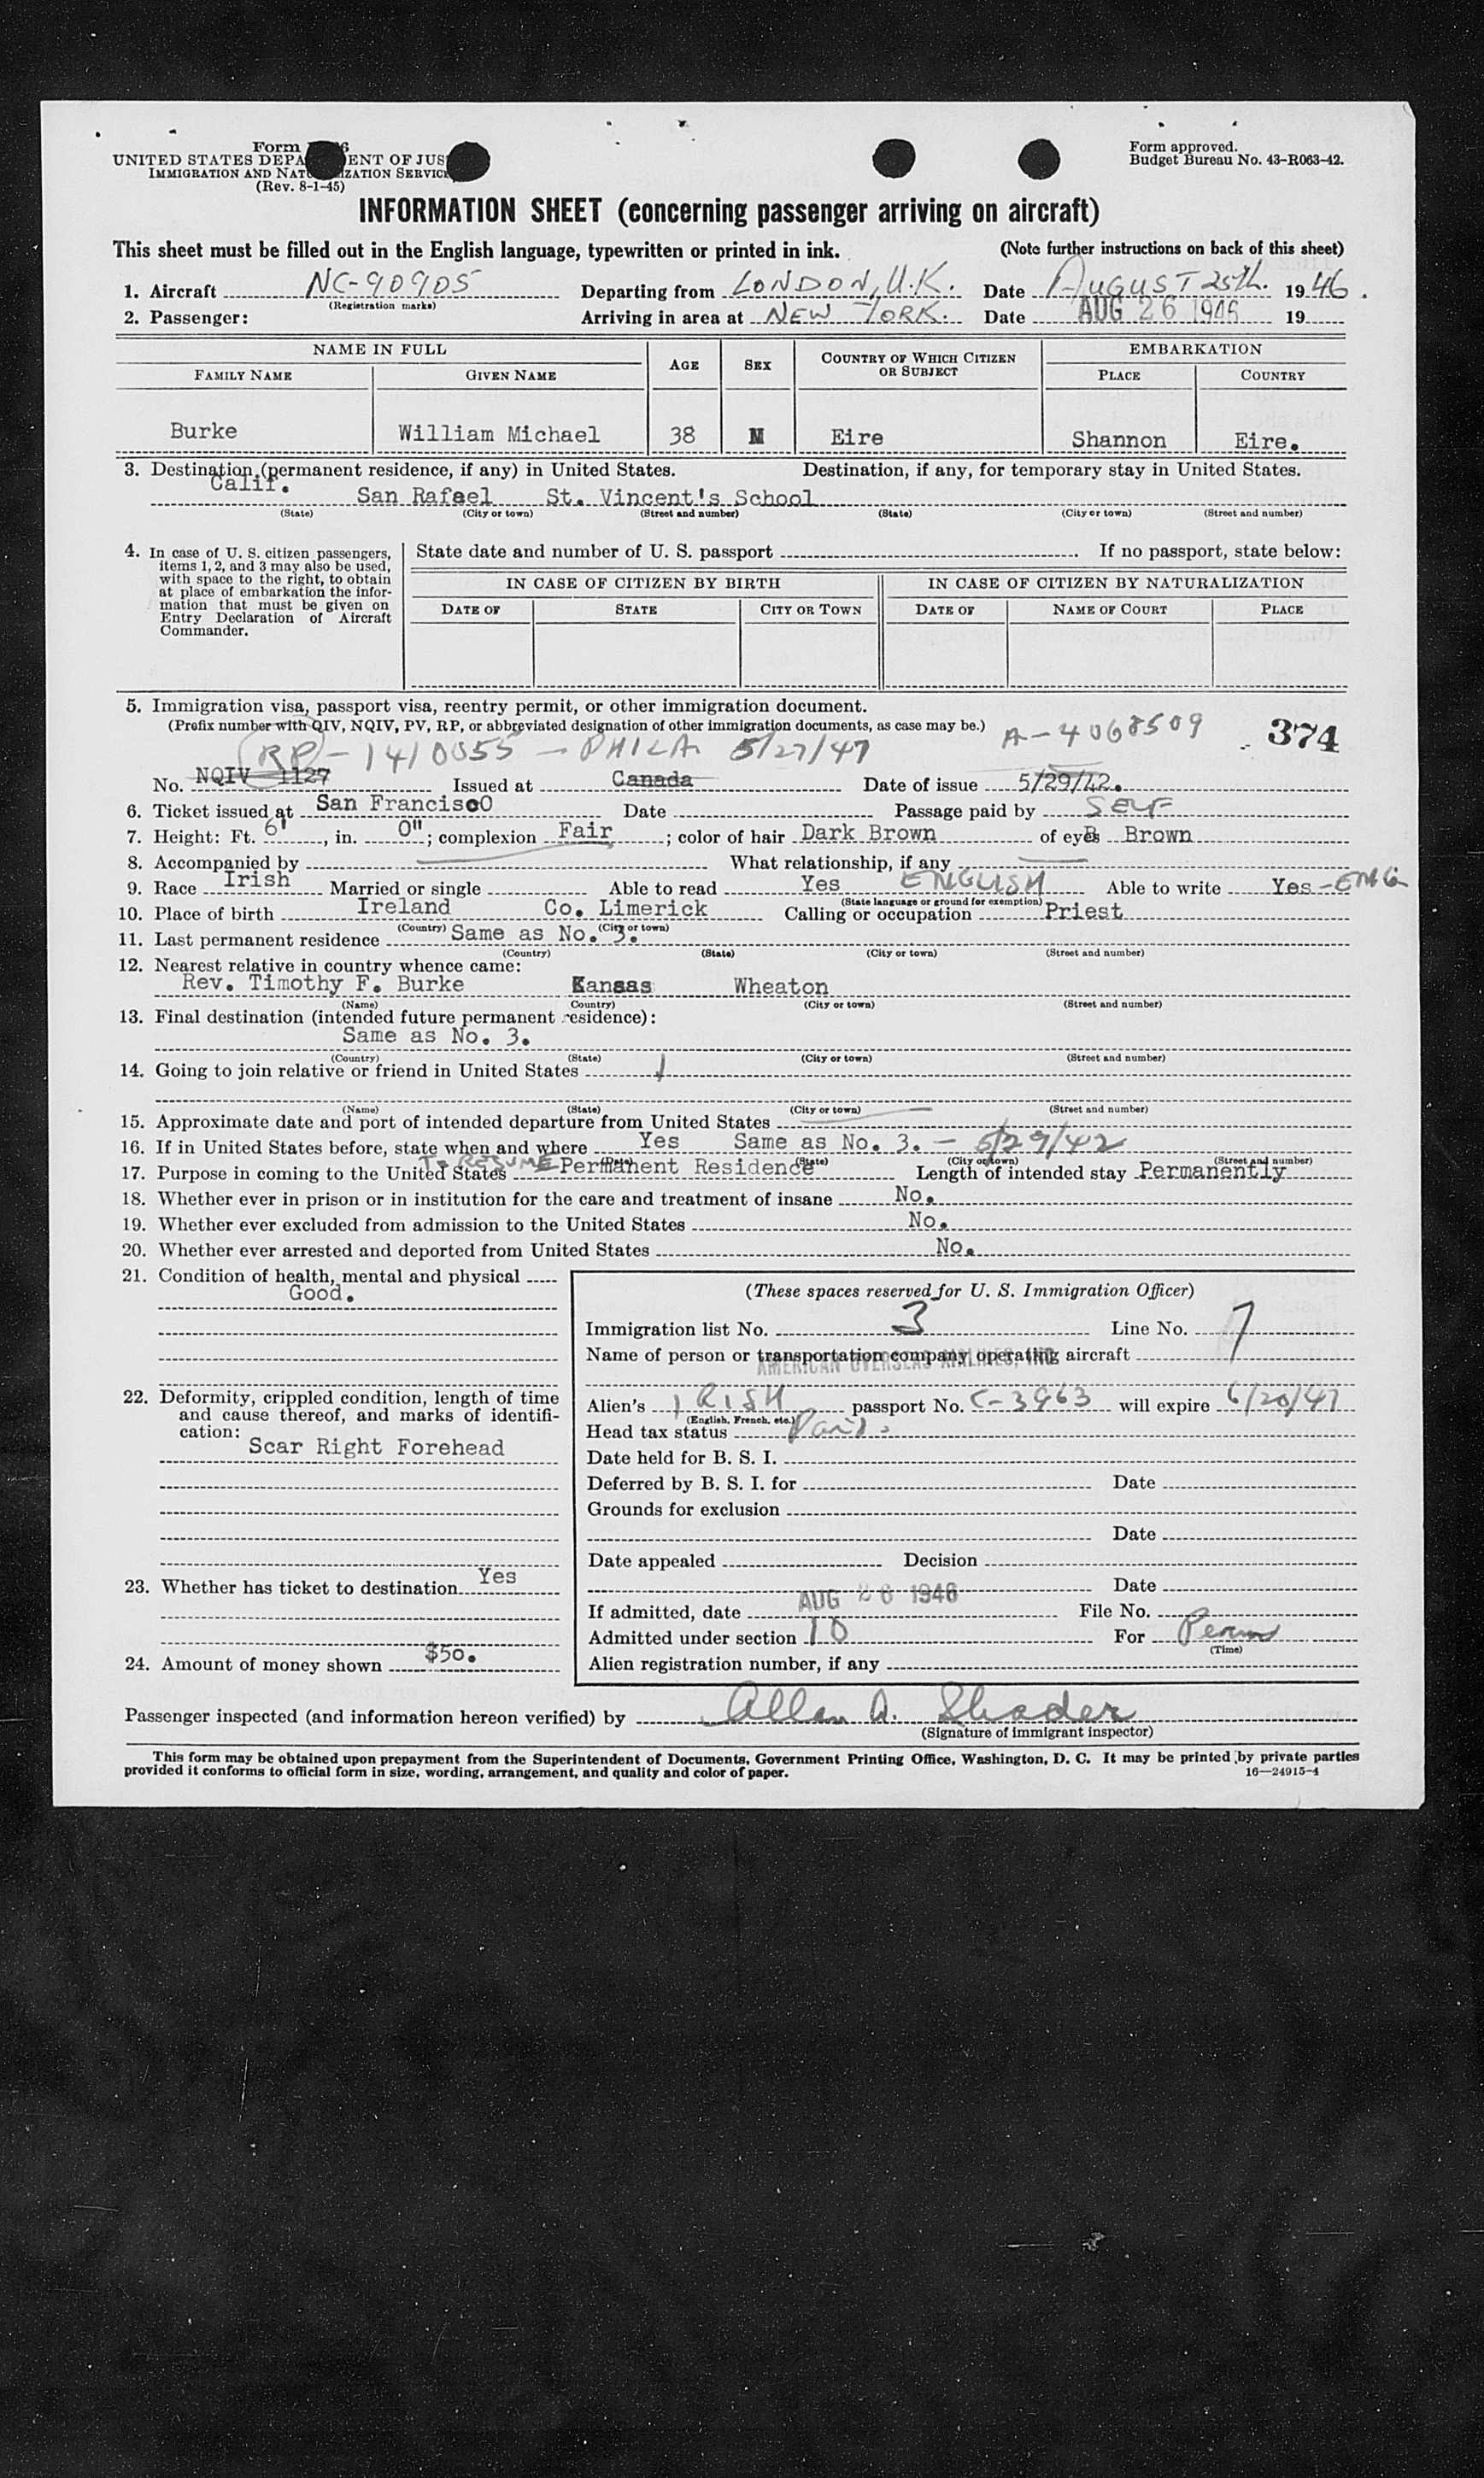 Form
UNITED STATES DEPA ENT OF JUS
IMMIGRATION AND NAT IZATION SERVIC
(Rev. 8-1-45)
Form approved.
Budget Bureau No. 43-R063-42.
INFORMATION SHEET (concerning passenger arriving on aircraft)
This sheet must be filled out in the English language, typewritten or printed in ink. (Note further instructions on back of this sheet)
1. Aircraft NC-90905 Departing from LONDON, U.K. Date AUGUST 25th. 1946.
(Registration marks)
2. Passenger: Arriving in area at NEW YORK. Date AUG 26 1946 19
NAME IN FULL AGE SEX COUNTRY OF WHICH CITIZEN OR SUBJECT EMBARKATION
FAMILY NAME GIVEN NAME PLACE COUNTRY
Burke William Michael 38 M Eire Shannon Eire.
3. Destination (permanent residence, if any) in United States. Destination, if any, for temporary stay in United States.
Calif. San Rafael St. Vincent's School
(State) (City or town) (Street and number) (State) (City or town) (Street and number)
4. In case of U. S. citizen passengers, items 1, 2, and 3 may also be used, with space to the right, to obtain at place of embarkation the information that must be given on Entry Declaration of Aircraft Commander.
State date and number of U. S. passport . If no passport, state below:
IN CASE OF CITIZEN BY BIRTH IN CASE OF CITIZEN BY NATURALIZATION
DATE OF STATE CITY OR TOWN DATE OF NAME OF COURT PLACE
5. Immigration visa, passport visa, reentry permit, or other immigration document.
(Prefix number with QIV, NQIV, PV, RP, or abbreviated designation of other immigration documents, as case may be.) A-4068509 374
RP - 1410055 - PHILA 5/27/47
No. NQIV 1127 Issued at Canada Date of issue 5/29/42.
6. Ticket issued at San FranciscO Date Passage paid by SELF
7. Height: Ft. 6', in. 0"; complexion Fair; color of hair Dark Brown of eyes Brown
8. Accompanied by What relationship, if any
9. Race Irish Married or single Able to read Yes ENGLISH Able to write Yes - ENG
(State language or ground for exemption)
10. Place of birth Ireland Co. Limerick Calling or occupation Priest
(Country) (City or town)
11. Last permanent residence Same as No. 3.
(Country) (State) (City or town) (Street and number)
12. Nearest relative in country whence came:
Rev. Timothy F. Burke Kansas Wheaton
(Name) Country) (City or town) (Street and number)
13. Final destination (intended future permanent residence):
Same as No. 3.
(Country) (State) (City or town) (Street and number)
14. Going to join relative or friend in United States
(Name) (State) (City or town) (Street and number)
15. Approximate date and port of intended departure from United States
16. If in United States before, state when and where Yes Same as No. 3. - 5/29/42
(Date) (State) (City or town) (Street and number)
17. Purpose in coming to the United States TO RESUME Permanent Residence Length of intended stay Permanently
18. Whether ever in prison or in institution for the care and treatment of insane No.
19. Whether ever excluded from admission to the United States No.
20. Whether ever arrested and deported from United States No.
21. Condition of health, mental and physical
Good.
22. Deformity, crippled condition, length of time and cause thereof, and marks of identification:
Scar Right Forehead
23. Whether has ticket to destination Yes
24. Amount of money shown $50.
(These spaces reserved for U. S. Immigration Officer)
Immigration list No. 3 Line No. 7
Name of person or transportation company operating aircraft
AMERICAN OVERSEAS AIRLINES, INC
Alien's IRISH passport No. C-3963 will expire 6/20/47
(English, French, etc.)
Head tax status Paid.
Date held for B. S. I.
Deferred by B. S. I. for Date
Grounds for exclusion
Date
Date appealed Decision
Date
If admitted, date AUG 26 1946 File No.
Admitted under section 10 For Perm
(Time)
Alien registration number, if any
Passenger inspected (and information hereon verified) by Allan A. Shader
(Signature of immigrant inspector)
This form may be obtained upon prepayment from the Superintendent of Documents, Government Printing Office, Washington, D. C. It may be printed by private parties
provided it conforms to official form in size, wording, arrangement, and quality and color of paper. 16—24915-4